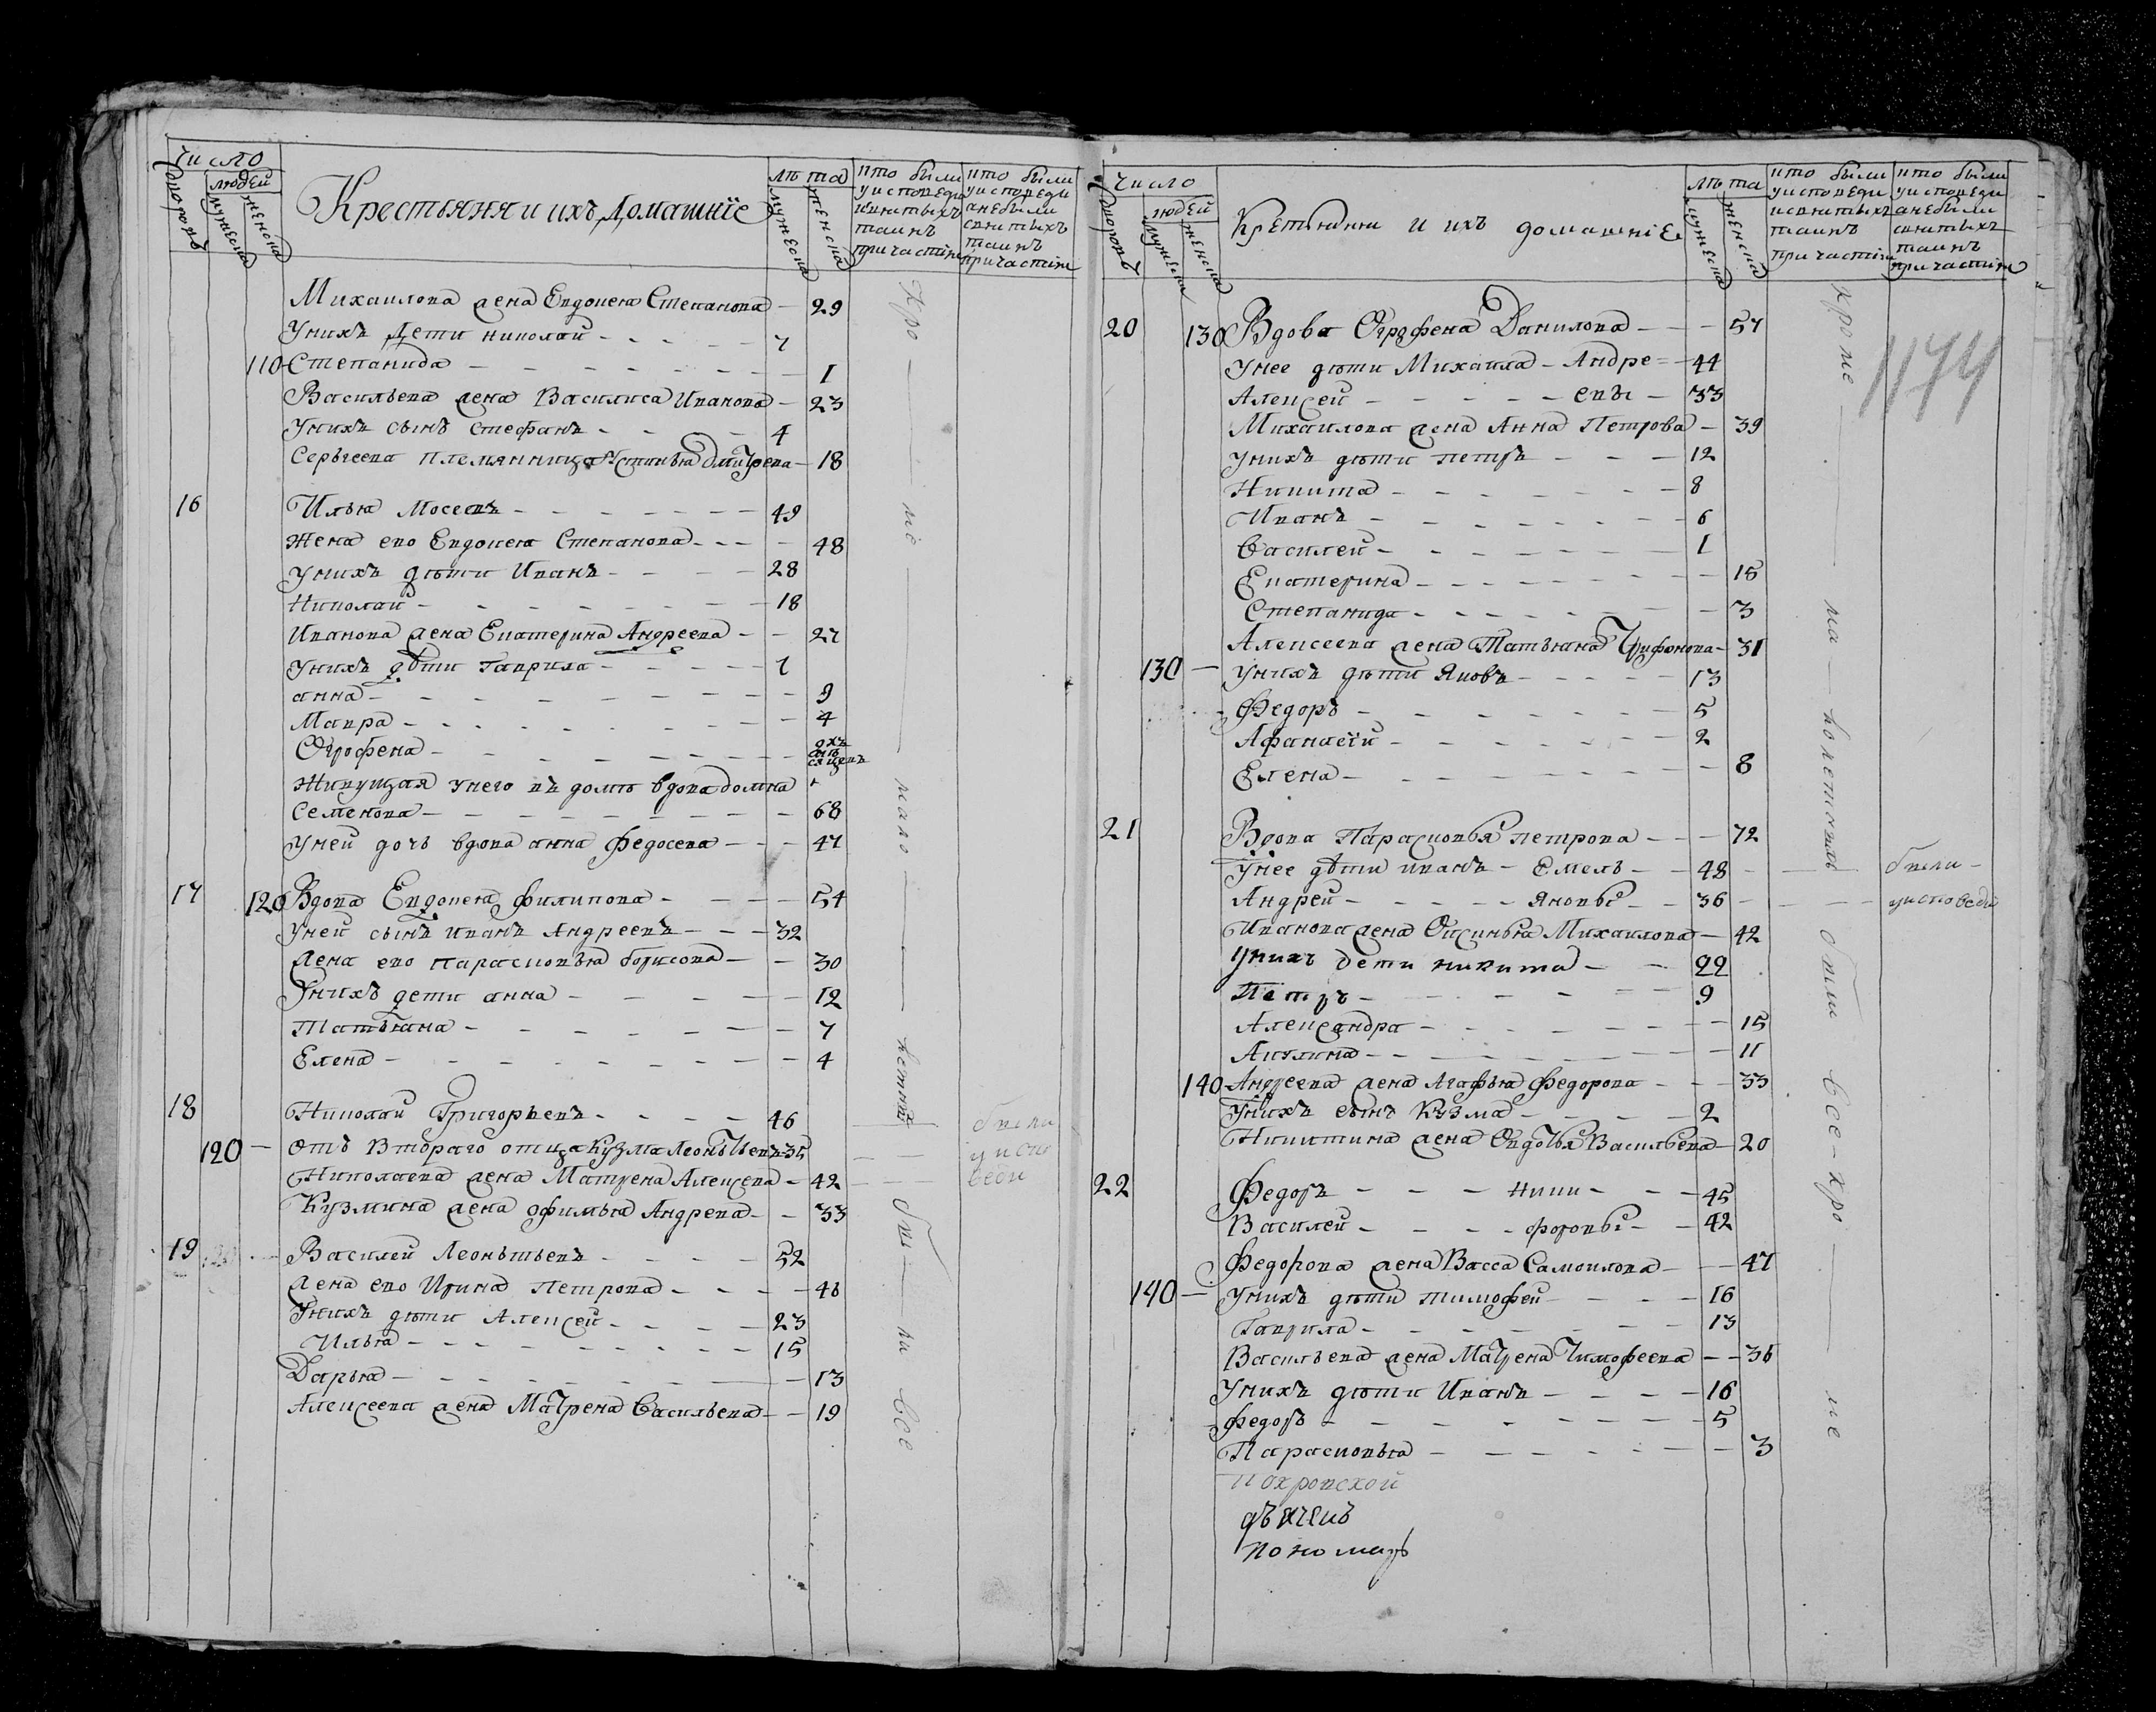 число
людей
дворовъ
мужеска
женска
Крестьяня и ихъ домашніе
лѣта
мужеска
женска
кто были у исповеди и святыхъ таинъ причастія
кто были у исповеди а не были святыхъ таинъ причастія
Михаилова жена Евдокея Степанова - 29
У нихъ дети николай - 7
110 Степанида - 1
Васильева жена Василиса Иванова - 23
У нихъ сынъ стефанъ - 4
Сергеева племянница Устинья дмитрева - 18
16 Илья Мосеевъ - 49
Жена ево Евдокея Степанова - 48
у нихъ дѣти Иванъ - 28
Николаи - 18
Иванова жена Екатерина Андреева - 27
У нихъ дѣти Гаврила - 7
анна - 9
Мавра - 4
Огрофена -
Живущая у него въ домѣ вдова домна
Семенова - 68
у ней дочь вдова анна федосева - 47
17 120 Вдова Евдокея филипова - 54
у ней сынъ иванъ Андреевъ - 32
жена ево парасковья борисова - 30
У нихъ дети анна - 12
Татьяна - 7
Елена - 4
18 Николаи Григорьевъ - 46
120 - отъ втораго отца Кузма Леонтьевъ 35
Николаева жена Матрена Алексева - 42
Кузмина жена офимья Андрева - 33
были у испо веди
19 Василеи Леонтьевъ - 52
жена ево Ирина Петрова - 48
У нихъ дѣти Алексеи - 23
Илья - 15
Дарья - 13
Алексеева жена Матрена васильева - 19
Кро - ме - мало - летныхъ бы - ли все
число
людей
дворовъ
мужеска
женска
Кретьяни и ихъ домашніе
лѣта
мужеска
женска
кто были у исповеди и святыхъ таинъ причастія
кто были у исповеди а не были святыхъ таинъ причастія
1174
20 130 Вдова Огрофена Данилова - 57
У нее дѣти Михаила - Андре = 44
Алексей - евы - 33
Михаилова жена Анна Петрова - 39
у нихъ дѣти петръ - 12
Никита - 8
Иванъ - 6
василеи - 1
Екатерина - 15
Степанида - 3
Алексеева жена Татьяна Трифонова - 31
130 - У нихъ дѣти Яковъ - 13
Федоръ - 5
Афанасіи - 2
Елена - 8
21 Вдова Парасковья петрова - 72
У нее дѣти иванъ - Емель - 48
Андрей - яновы - 36
были - у исповеди
Иванова жена Оксинья Михаилова - 42
У нихъ дети никита - 22
Петръ - 9
Александра - 15
Акулина - 11
140 Андреева жена Агафья федорова - 33
У нихъ сынъ кузма - 2
Никитина жена Овдотья Васильева - 20
22 Федоръ - Ники - 45
Василеи - форовы - 42
Федорова жена Васса Самоилова - 47
140 - У нихъ дѣти тимофеи - 16
Гаврила - 13
Васильева жена Матрена Тимофеева - 36
У нихъ дѣти Иванъ - 16
федоръ - 5
Парасковья - 3
покровской
дьячекъ
пономарь
кроме - ма - лолетныхъ были все - кро - ме